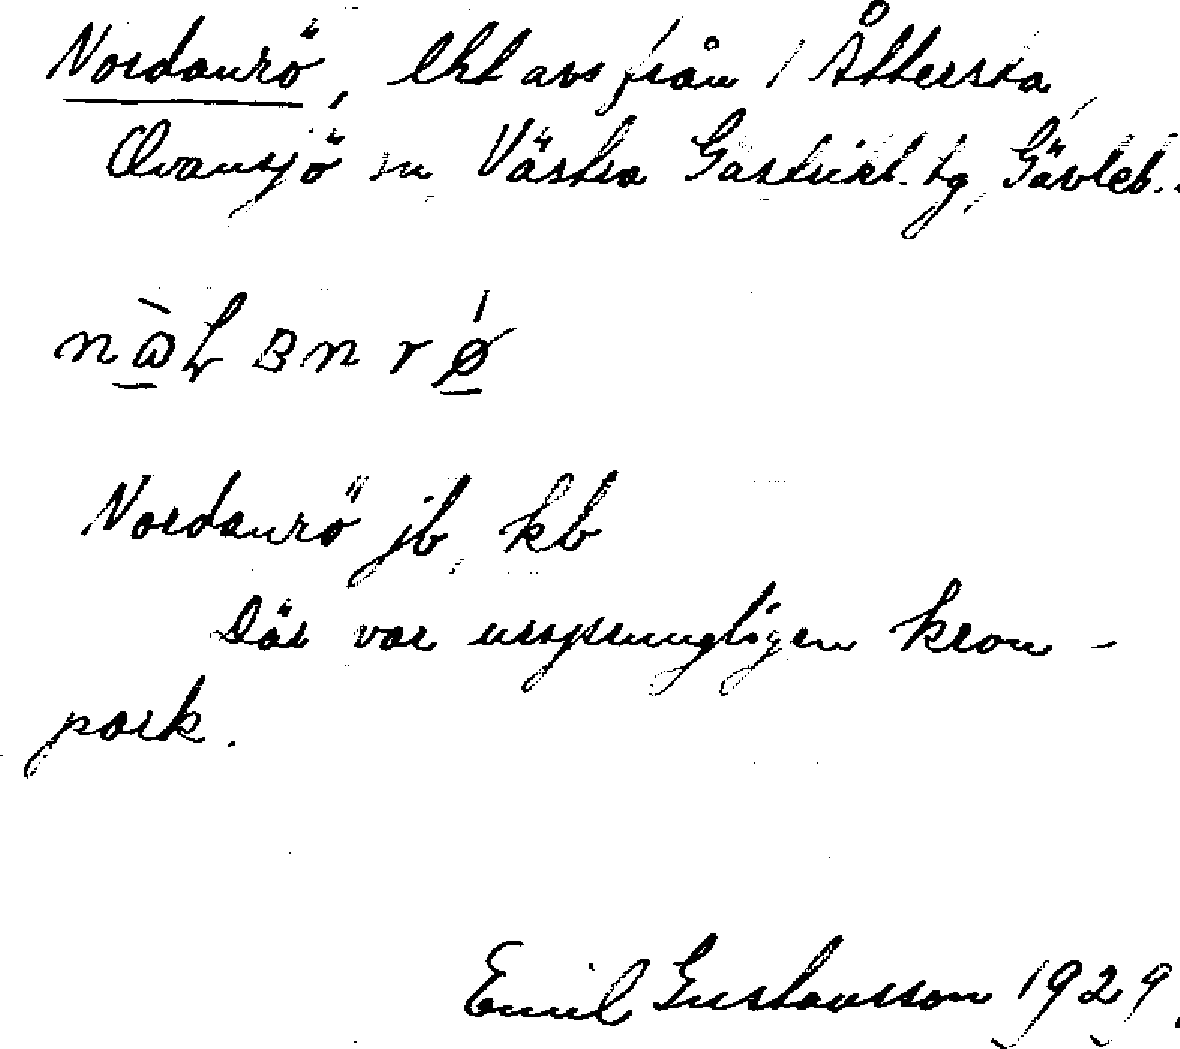 Nordanrö, lht avs från 1 Åttersta,
Ovansjö sn Västra Gästrikl. tg, Gävleb..
Nordanrö jb, kb
Där var ursprungligen kron-
park.
Emil Gustavsson 1929.